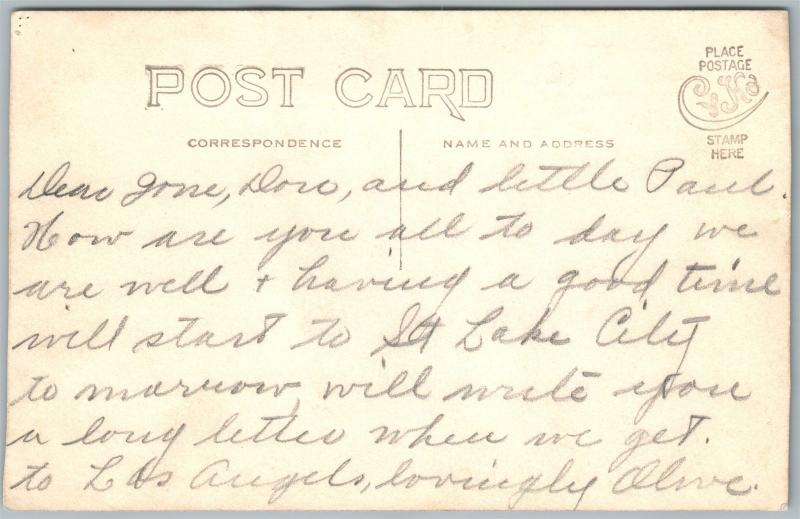 POST CARD
PLACE
POSTAGE
STAMP
HERE
CORRESPONDENCE
NAME AND ADDRESS
Dear Jone, Dore, and little Paul.
How are you all to day we
are well + having a good time
will start to St Lake City
to marrow, will write you
a long letter when we get.
to Los Angels, lovingly Olive.